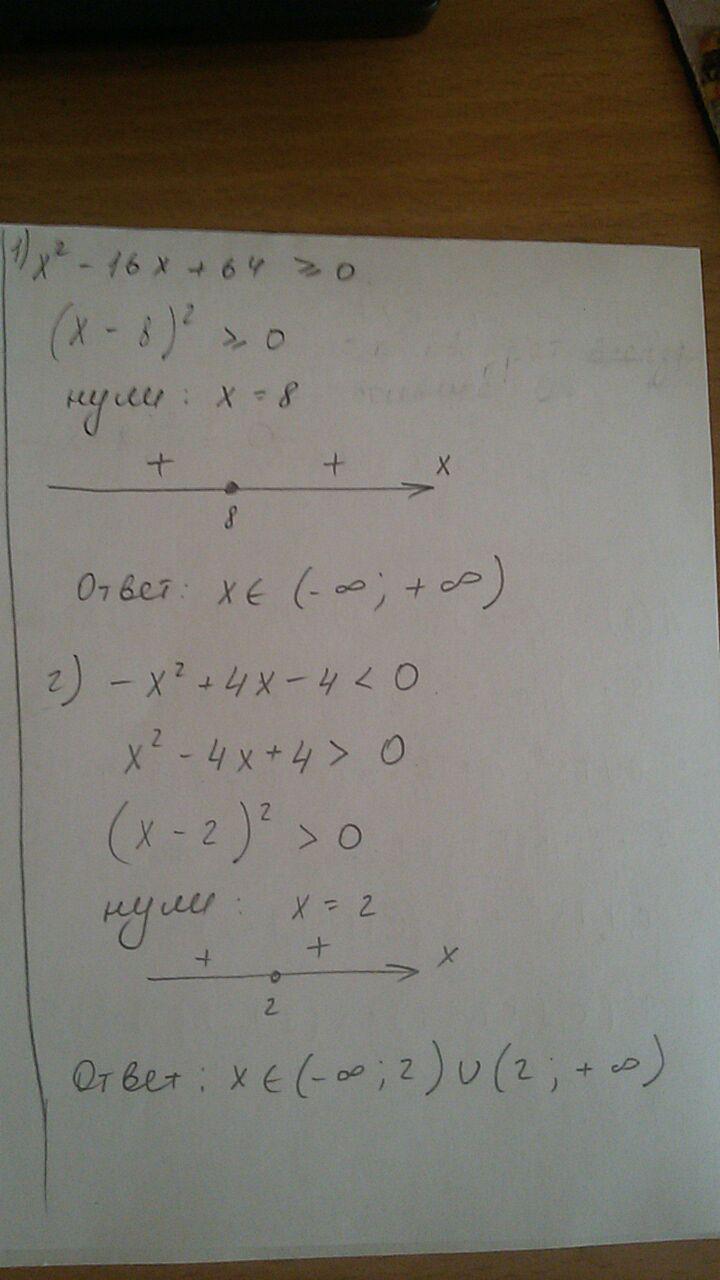 1) x² - 16x + 64 ⩾ 0
(x - 8)² ⩾ 0
нули: x = 8
+ + x
8
Ответ: x ∈ (-∞; +∞)
2) -x² + 4x - 4 < 0
x² - 4x + 4 > 0
(x - 2)² > 0
нули: x = 2
+ + x
2
Ответ: x ∈ (-∞; 2) ∪ (2; +∞)